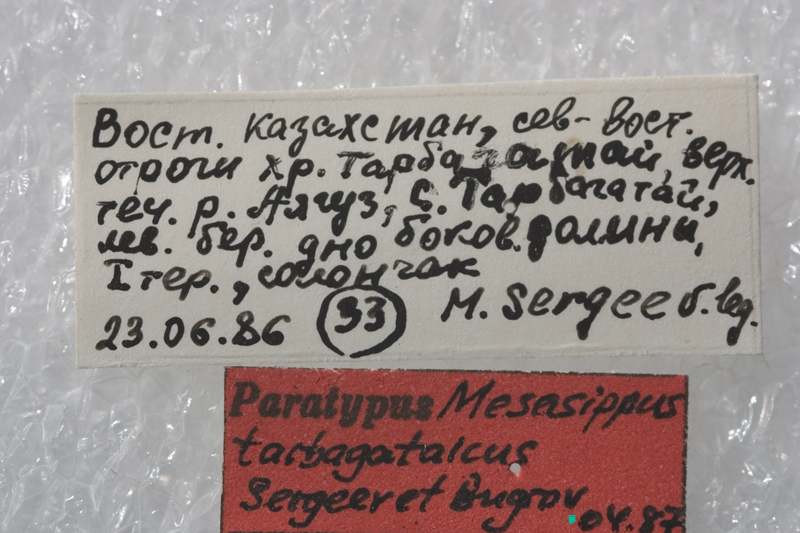 Вост. Казахстан, сев-вост.
отроги хр. Тарбагатай, верх.
теч. р. Аягуз, С. Тарбагатай,
лев. бер. дно боков. долины,
I тер., солончак
23.06.86 33 M. Sergeev leg.
Paratypus Mesasippus
tarbagataicus
Sergeev et Bugrov
04.87